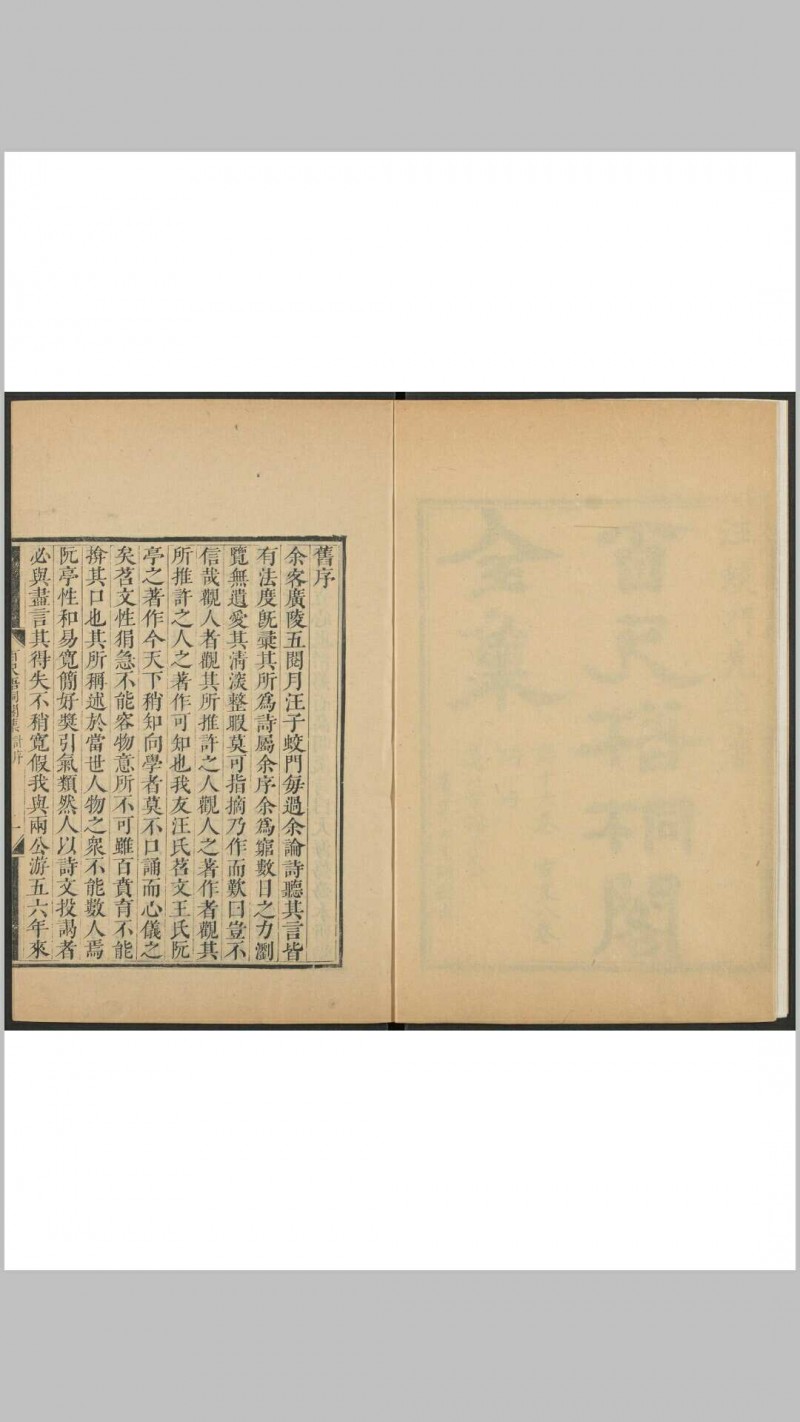 舊序
余客廣陵五閱月汪子蛟門每過余論詩聽其言皆
有法度旣彚其所爲詩屬余序余爲窮數日之力瀏
覽無遺愛其淸深整暇莫可指摘乃作而歎曰豈不
信哉觀人者觀其所推許之人觀人之著作者觀其
所推許之人之著作可知也我友汪氏苕文王氏阮
亭之著作今天下稍知向學者莫不口誦而心儀之
矣苕文性狷急不能容物意所不可雖百賁育不能
揜其口也其所稱述於當世人物之衆不能數人焉
阮亭性和易寬簡好獎引氣類然人以詩文投謁者
必與盡言其得失不稍寬假我與兩公游五六年來
百尺梧桐閣集 序
一